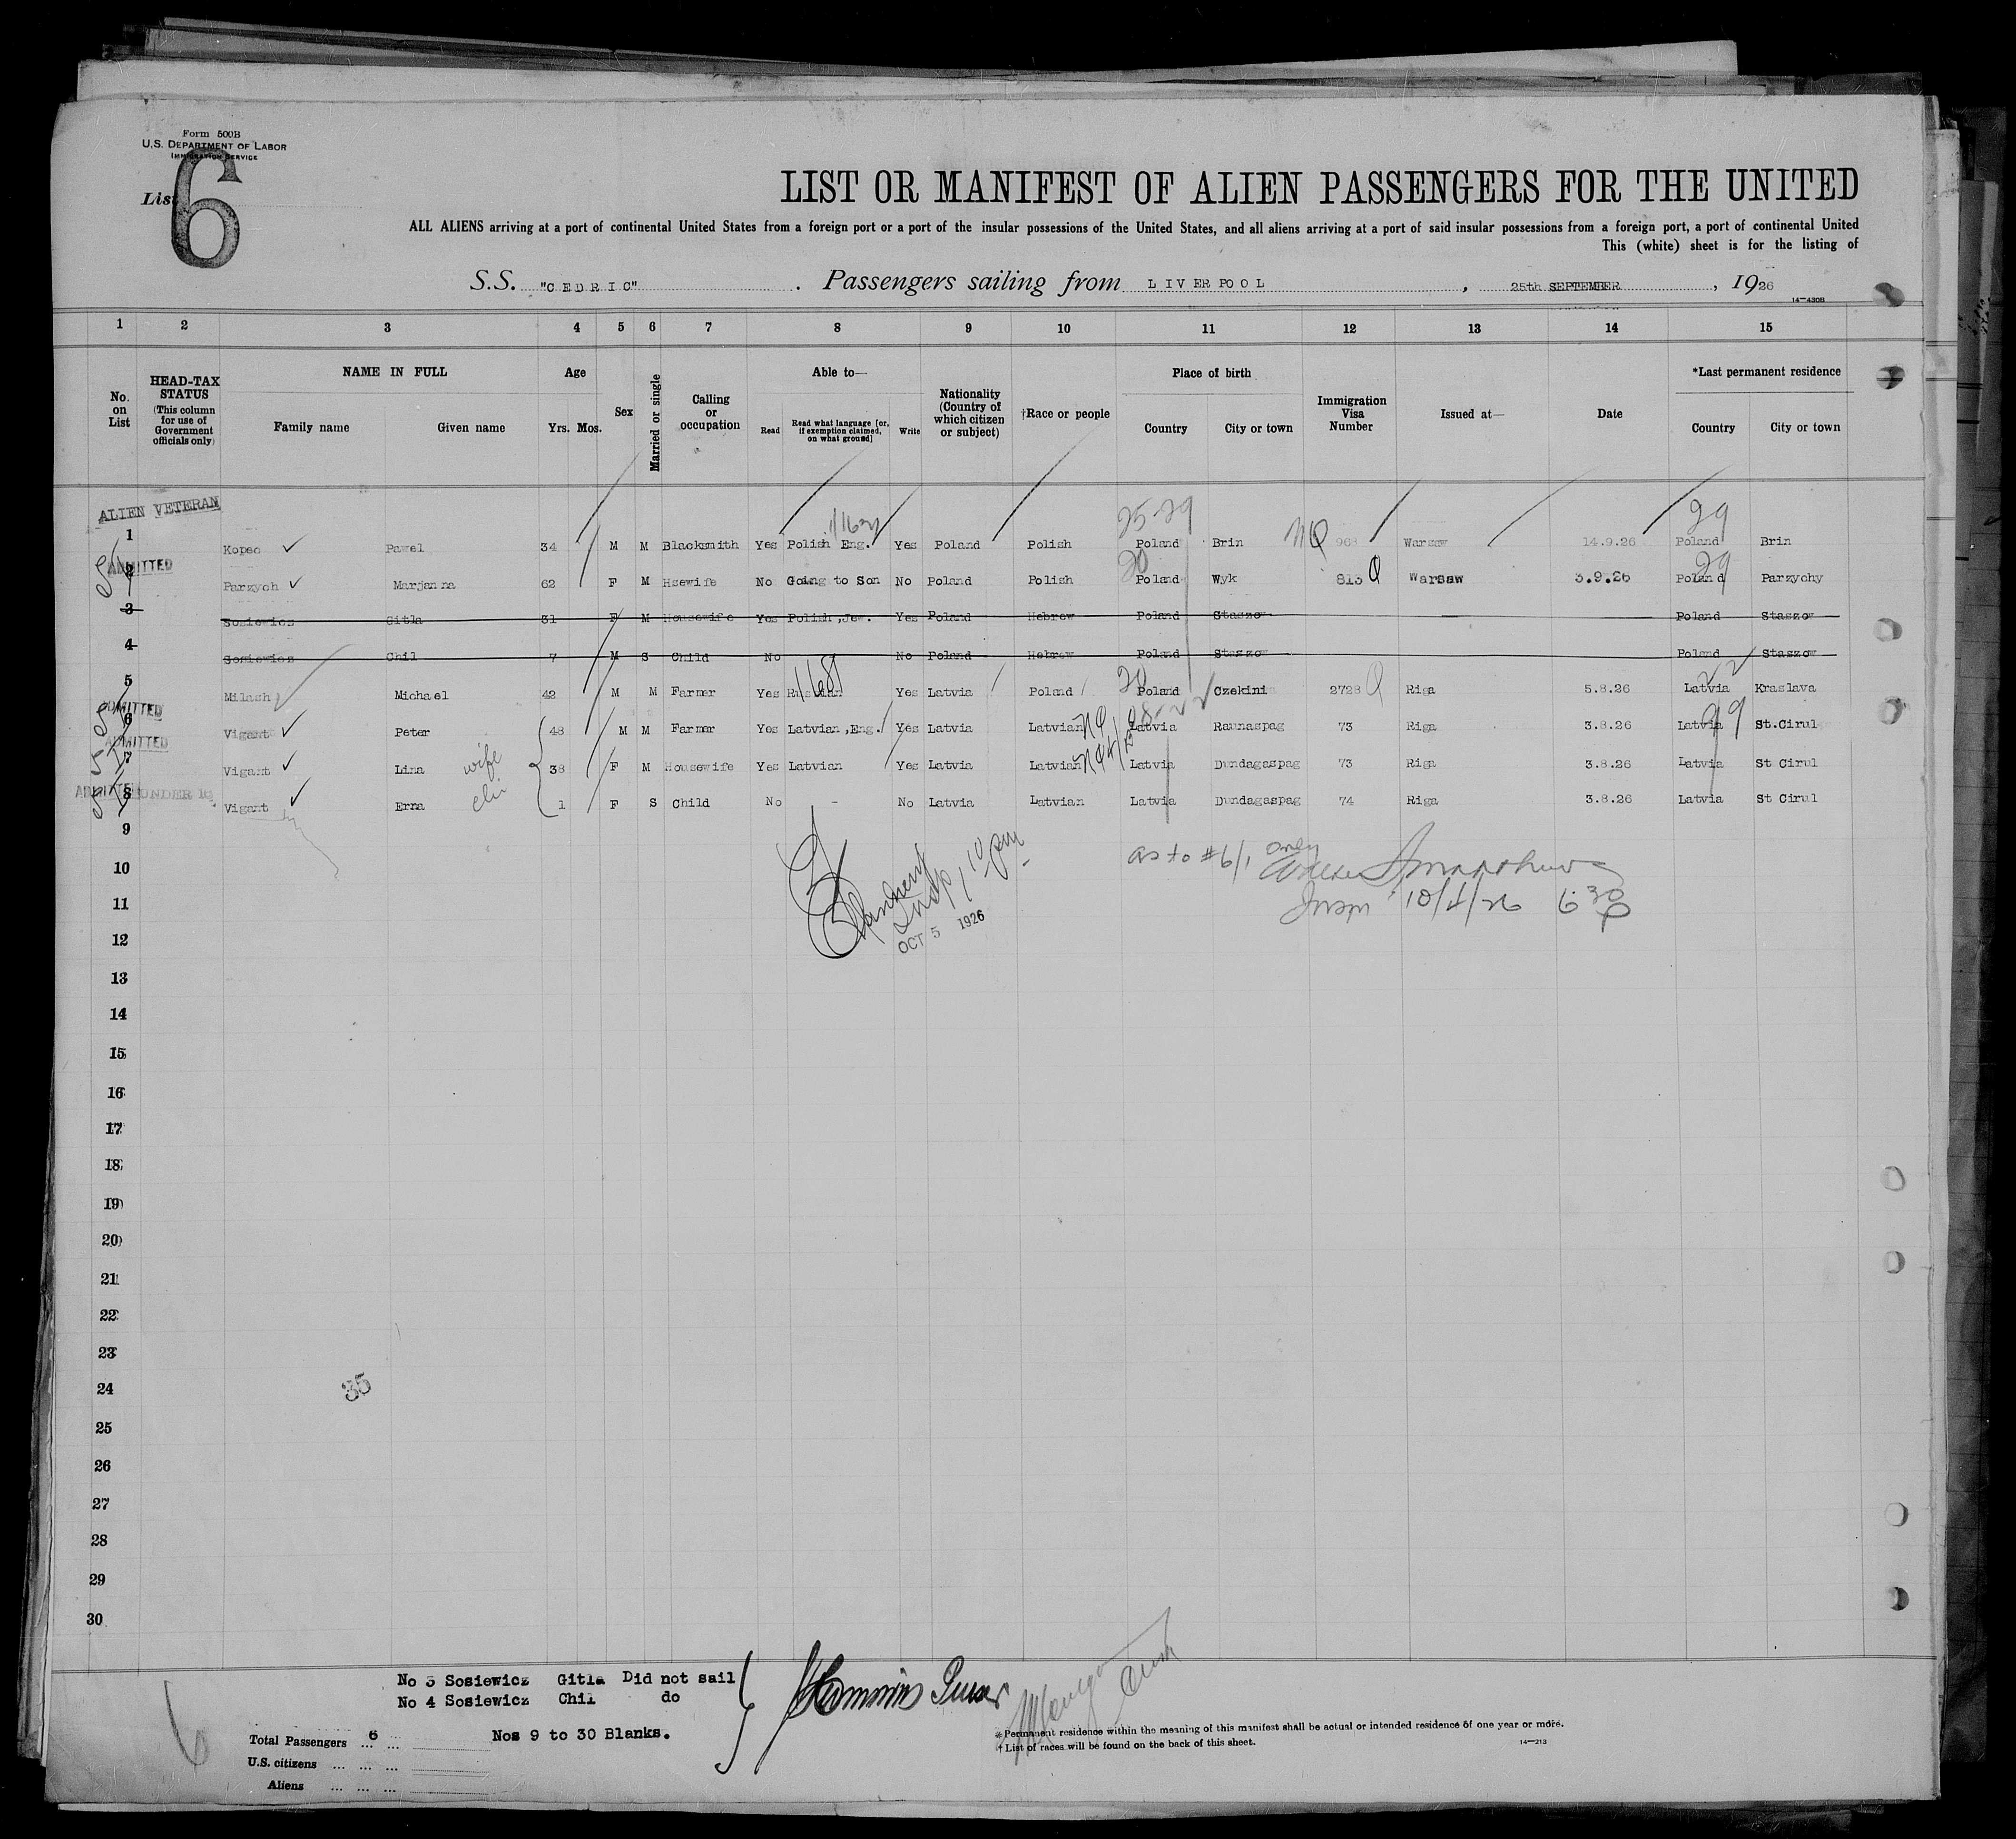 Form 500B
U.S. DEPARTMENT OF LABOR
IMMIGRATION SERVICE
List 6
LIST OR MANIFEST OF ALIEN PASSENGERS FOR THE UNITED
ALL ALIENS arriving at a port of continental United States from a foreign port or a port of the insular possessions of the United States, and all aliens arriving at a port of said insular possessions from a foreign port, a port of continental United
This (white) sheet is for the listing of
S.S. "CEDRIC" . Passengers sailing from LIVERPOOL , 25th SEPTEMBER , 1926
14—430B
1 2 3 4 5 6 7 8 9 10 11 12 13 14 15
No. on List
HEAD-TAX STATUS (This column for use of Government officials only)
NAME IN FULL Family name Given name
Age Yrs. Mos.
Sex
Married or single
Calling or occupation
Able to— Read Read what language [or, if exemption claimed, on what ground] Write
Nationality (Country of which citizen or subject)
†Race or people
Place of birth Country City or town
Immigration Visa Number
Issued at—
Date
*Last permanent residence Country City or town
ALIEN VETERAN
25-29 29
1 Kopec Pawel 34 M M Blacksmith Yes Polish Eng. Yes Poland Polish Poland Brin NQ 968 Warsaw 14.9.26 Poland Brin
ADMITTED
20 29
2 Parzych Marjanna 62 F M Hsewife No Going to Son No Poland Polish Poland Wyk 813 Q Warsaw 3.9.26 Poland Parzychy
3 Sosiewicz Gitla 31 F M Housewife Yes Polish,Jew. Yes Poland Hebrew Poland Staszow Poland Staszow
4 Sosiewicz Chil 7 M S Child No No Poland Hebrew Poland Staszow Poland Staszow
168 20 22
5 Milash Michael 42 M M Farmer Yes Russian Yes Latvia Poland Poland Czekini 2728 Q Riga 5.8.26 Latvia Kraslava
ADMITTED
6 Vigant Peter 48 M M Farmer Yes Latvian,Eng. Yes Latvia Latvian NQ Latvia Raunaspag 73 Riga 3.8.26 Latvia St.Cirul
29
ADMITTED
7 Vigant Lina wife 38 F M Housewife Yes Latvian Yes Latvia Latvian Latvia Dundagaspag 73 Riga 3.8.26 Latvia St Cirul
ADMITTED UNDER 16
8 Vigant Erna 1 F S Child No - No Latvia Latvian Latvia Dundagaspag 74 Riga 3.8.26 Latvia St Cirul
9
as to #6/1 only
10
Insp 1 10 pm
11
10/4/26 6 30 P
OCT 5 1926
12
13
14
15
16
17
18
19
20
21
22
23
24
35
25
26
27
28
29
30
No 3 Sosiewicz Gitla Did not sail
No 4 Sosiewicz Chil do
Purser
Nos 9 to 30 Blanks.
Total Passengers 6
U.S. citizens
Aliens
*Permanent residence within the meaning of this manifest shall be actual or intended residence of one year or more.
†List of races will be found on the back of this sheet.
14—213